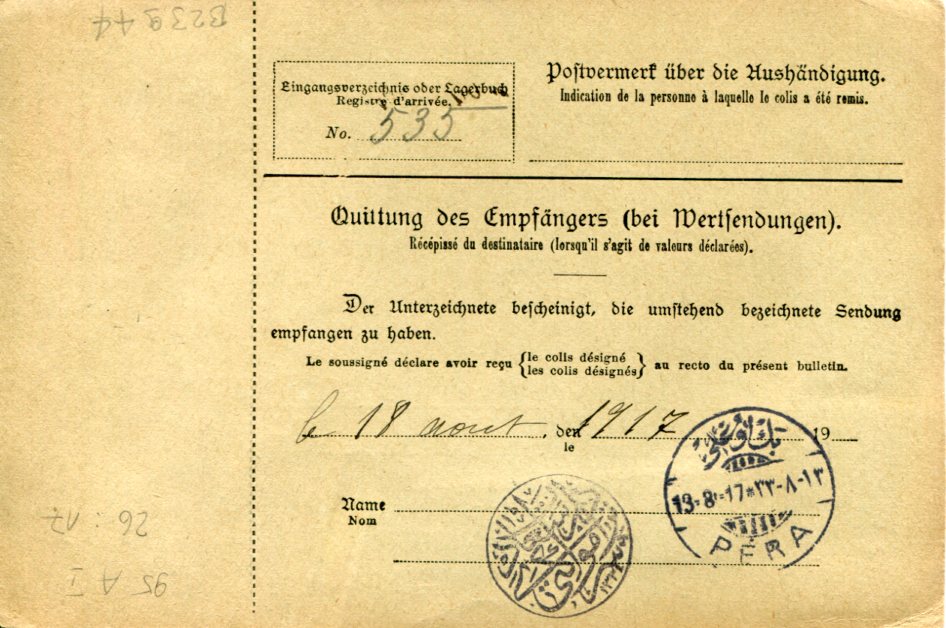 B23944
Eingangsverzeichnis oder Lagerbuch
Registre d'arrivée.
No. 535
Postvermerk über die Aushändigung.
Indication de la personne à laquelle le colis a été remis.
Quittung des Empfängers (bei Wertsendungen).
Récépissé du destinataire (lorsqu'il s'agit de valeurs déclarées).
Der Unterzeichnete bescheinigt, die umstehend bezeichnete Sendung
empfangen zu haben.
Le soussigné déclare avoir reçu {le colis désigné / les colis désignés} au recto du présent bulletin.
le 18 aout, den 1917 19
le
Name
Nom
بك اوغلی
13-8-17*٣٣-٨-١٣
PERA
26 17
95 A I